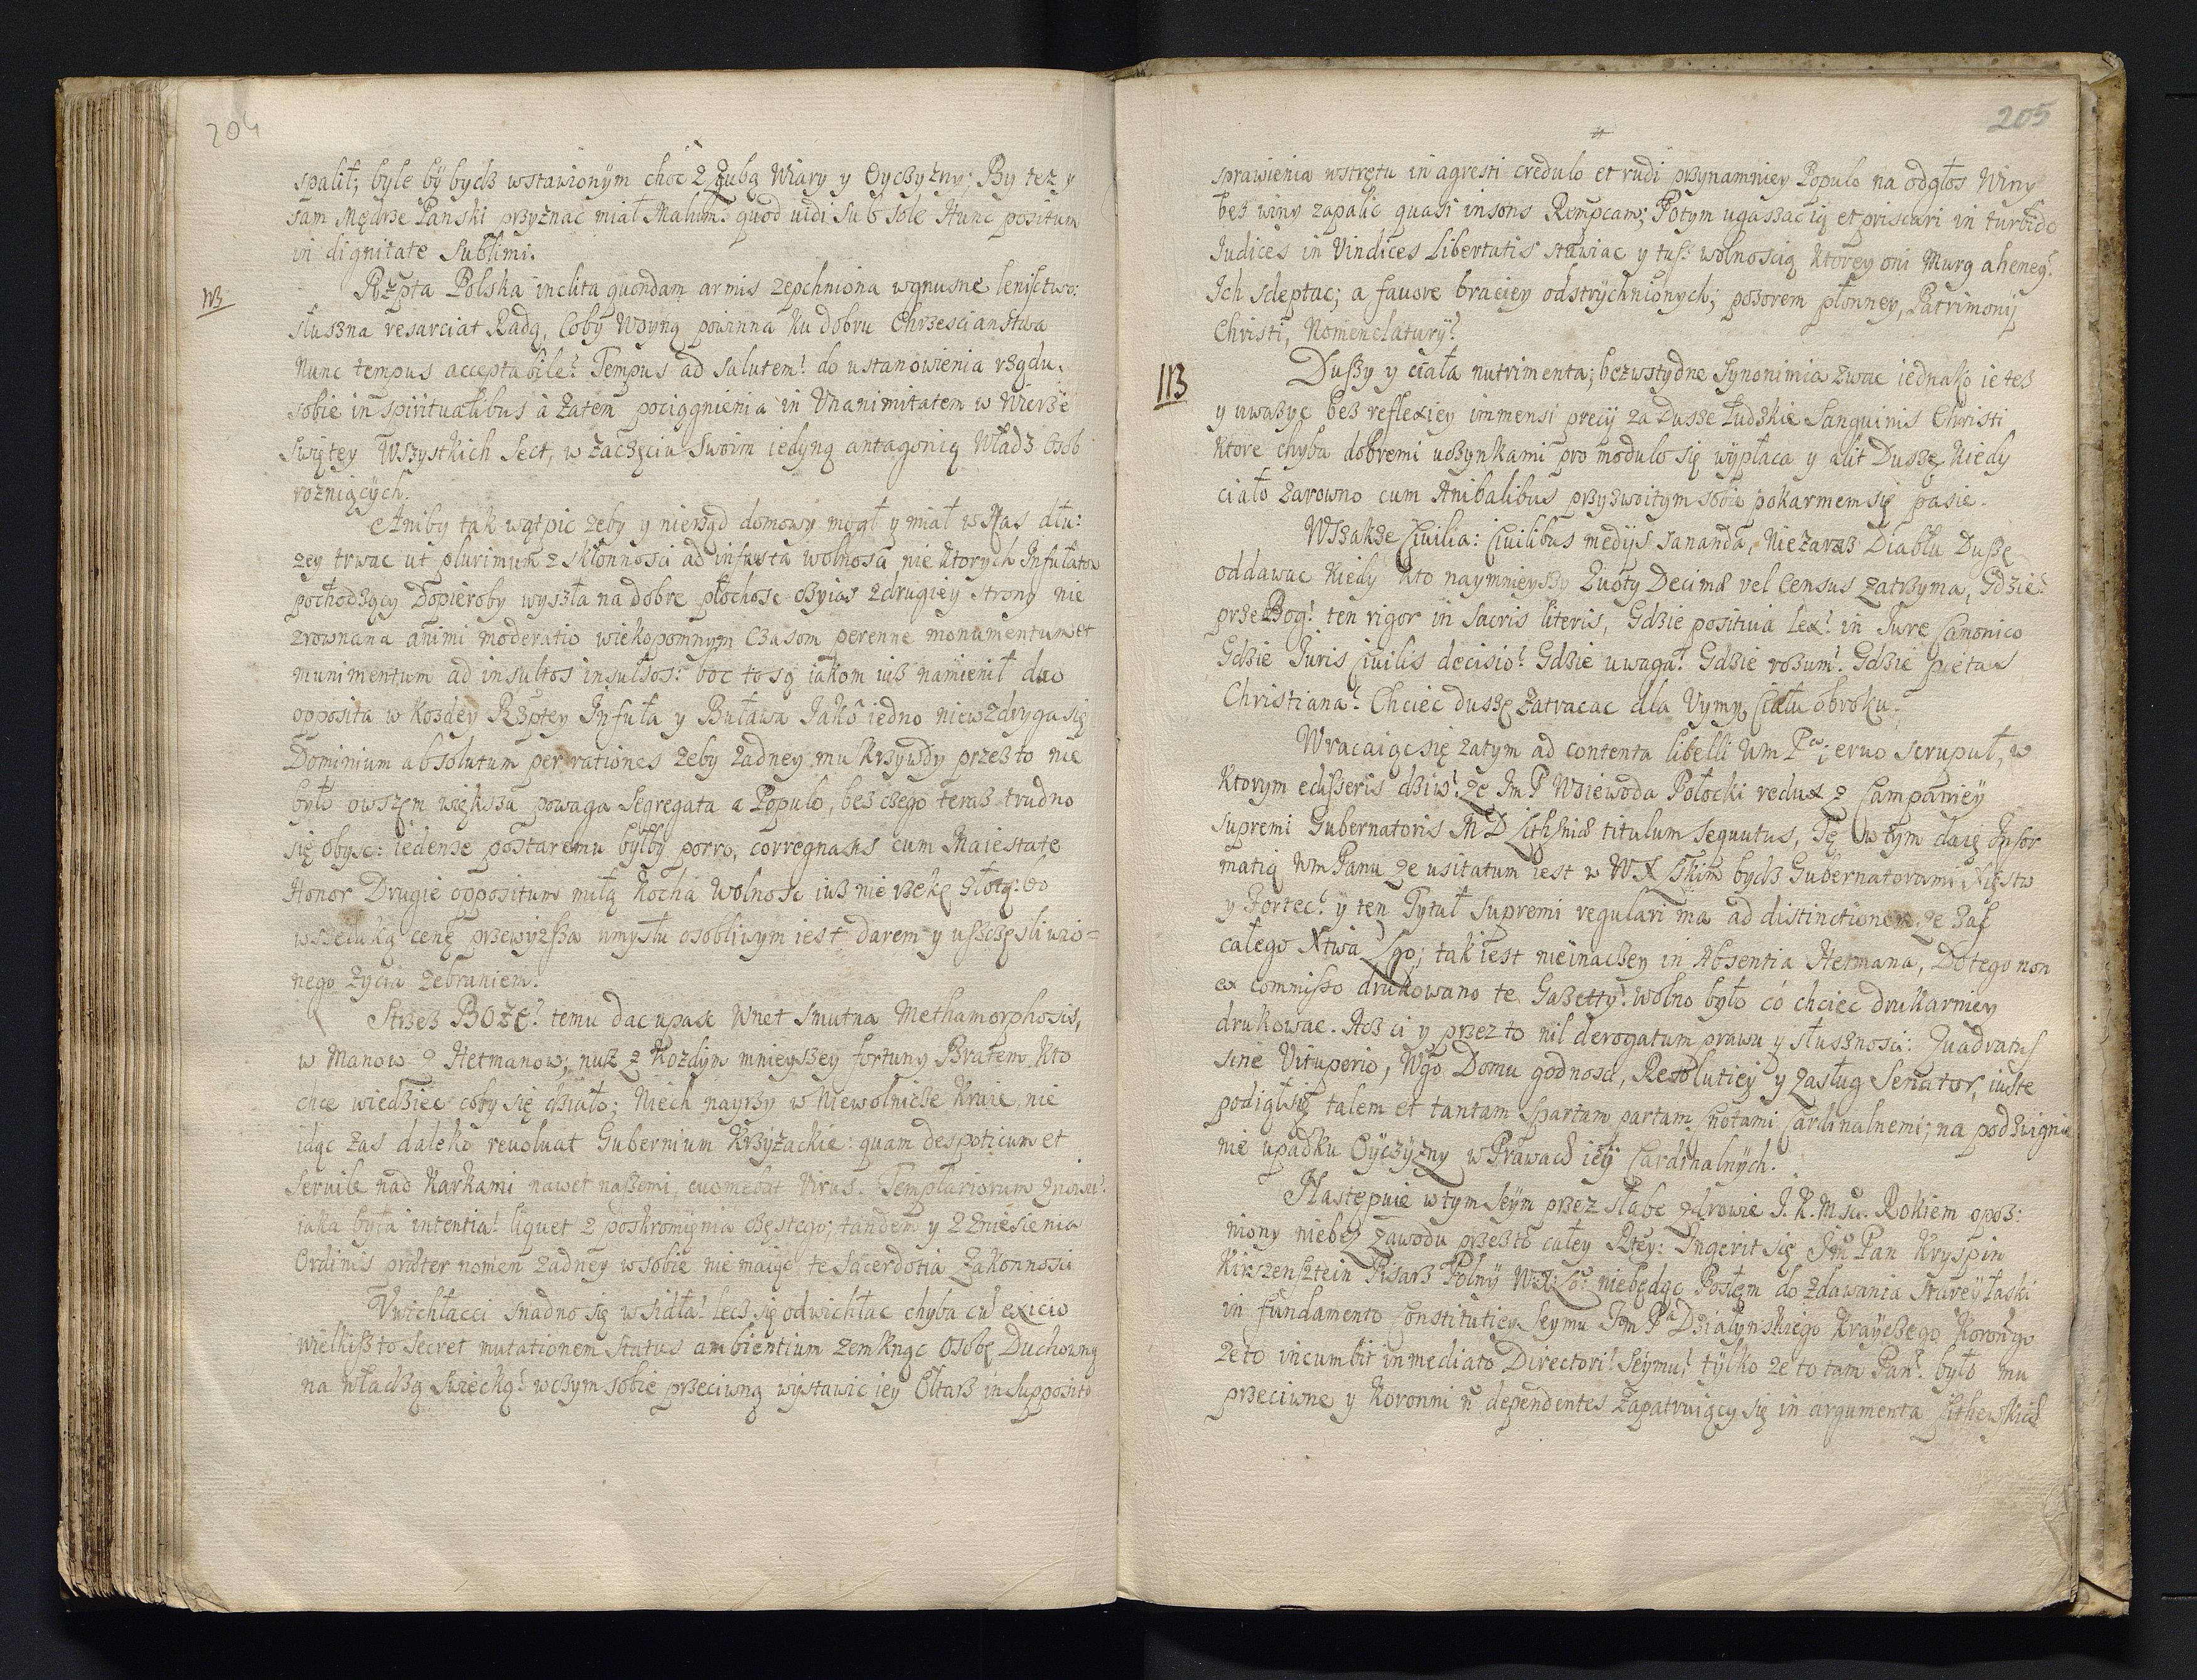 204
spalił; byle by bydz wstawionym choc z Zgubą Wiary y Oyczyzny: By tez y
sam Mędrze Panski przyznac miał Malum: quod uidi sub sole Hunc positum
in dignitate sublimi.
NB
Rzpta Polska inclita quondam armis zepchniona w gnusne lenistwo:
słuszna resarciat Radą, coby Woyną powinna ku dobru Chrzescianstwa
Nunc tempus acceptabile! Tempus ad salutem! do ustanowienia rządu.
sobie in spiritualibus a zatem pociągnienia in Unanimitatem w Wierze
Swiętey Wszystkich Sect, w zaczęciu Swoim iedyną antagonią Władz Osob
roznigcych.
Aniby tak wątpic zeby y nierząd domowy mogł y miał w Nas dłu:
zey trwac ut plurimum z skłonnosci ad infausta wolnosci nie ktorych Infułatow
pochodzący Dopieroby wyszła na dobre płochosc czyias z drugiey strony nie
zrownana animi moderatio wiekopomnym czasom perenne monumentum et
munimentum ad insultos insulsos: boc to są iakom iuz namienił duo
opposita w kozdey Rzptey Infuła y Buława Jako iedno niewzdryga się
Dominium absolutum per rationes zeby zadney mu krzywdy przez to nie
było owszem większa powaga Segregata a Populo, bez czego teraz trudno
się obysc: iedense postaremu byłby porro, corregnans cum Maiestate
Honor Drugie oppositum miłą kocha Wolnosc iuz nie rzekę złotą: bo
wszelką cenę przewyzsza umysłu osobliwym iest darem y uszczęsliwio=
nego zycia zebraniem.
Strzez BOZE! temu dac upasc Wnet smutna Methamorphosis,
w Manow z Hetmanow; nuz z kozdym mnieyszey fortuny Bratem. Kto
chce wiedziec coby się działo; Niech nayrzy w Niewolnicze Kraie, nie
idąc zas daleko reuoluat Gubernium Krzyzackie: quam despoticum et
seruile nad Karkami nawet naszemi, euomebat Virus. Templariorum znowu!
iaka była intentia! liquet z poskromienia częstego; tandem y z zniesienia
Ordinis præter nomen zadney w sobie nie maiąc te sacerdotia zakonnosci
Uwichłacci snadno się w sidła! lecz się odwichłac chyba cu exicio
wielkiszto Secret mutationem Status ambientium zemknąc Osobę Duchowną
na władzą swiecką! w czym sobie przeciwną wystawic iey Ołtarz in Supposito
205
sprawienia wstrętu in agresti credulo et rudi przynamniey Populo na odgłos Winy
bez winy zapalic quasi insons Rempcam; Potym ugaszac ią et priscari in turbido
Judices in Vindices Libertatis stawiac y tuż wolnoscią ktorey oni Murą aheneg.
Ich sdeptac; a fauore braciey odstrychnionych; pozorem płonney, Patrimonij
Christi, Nomenclatury!
NB
Duszy y ciała nutrimenta; bezwstydne Synonimia zwac iednako ie tez
y uwazyc bez reflexiey immensi precij za Dusze Ludzkie Sanguinis Christi
ktore chyba dobremi uczynkami pro modulo się wypłaca y alit Duszę, kiedy
ciało zarowno cum Anibalibus przyzwoitym sobie pokarmem się pasie.
Wszakze Ciuilia: Ciuilibus medijs sananda, Niezaraz Diabłu Duszę
oddawac kiedy kto naymnieyszy Zuoty Decimæ vel Census zatrzyma, Gdzie!
przebog! ten rigor in sacris literis, Gdzie positiua lex! in Jure Canonico
Gdzie Juris Ciuilis decisio! Gdzie uwaga! Gdzie rozum! Gdzie pietas
Christiana! Chciec duszę zatracac dla Vymy Ciału obroku.
Wracaiąc się zatym ad contenta libelli Wm Pa; eruo scrupuł, w
ktorym edisseris dziw! ze Jm P Woiewoda Połocki redux z Campaniey
supremi Gubernatoris M D Lithniæ titulum sequutus, Tę w tym daię Infor
matią Wm Panu ze usitatum iest w W X Lskim bydz Gubernatorami Xięstw
y Fortec! y ten Tytuł supremi regulari ma ad distinctionem ze Zas
całego Xtwa Lgo; tak iest nieinaczey in Absentia Hetmana, Do tego non
ex commisso drukowano te Gazetty! wolno było co chciec drukarniey
drukowac. Acz ci y przez to nil derogatum prawu y słusznosci: Quadratus
sine Vituperio, Wgo Domu godnosci, Resolutiey y zasług Senator, iuste
podiąłsię talem et tantam Spartam partam Cnotami Cardinalnemi; na podzwignie
nie upadku Oyczyzny w Prawach iey Cardinalnych.
Następuie w tym Seym przez słabe zdrowie J. K. M sci. Rokiem opoz:
niony niebez zawodu przezto całey Rtey: Ingerit się Jm Pan Kryspin
Kirszensztein Pisarz Polny W: X: L: niebędąc Posłem do zdawania starey Łaski
in fundamento Constitutiey Seymu Jm Pa Działynskiego Krayczego Koron'go
ze to incumbit immediato Directori! Seymu! tylko ze to tam Pan! było mu
przeciwne y Koronni n dependentes zapatruiący się in argumenta Lithewskich